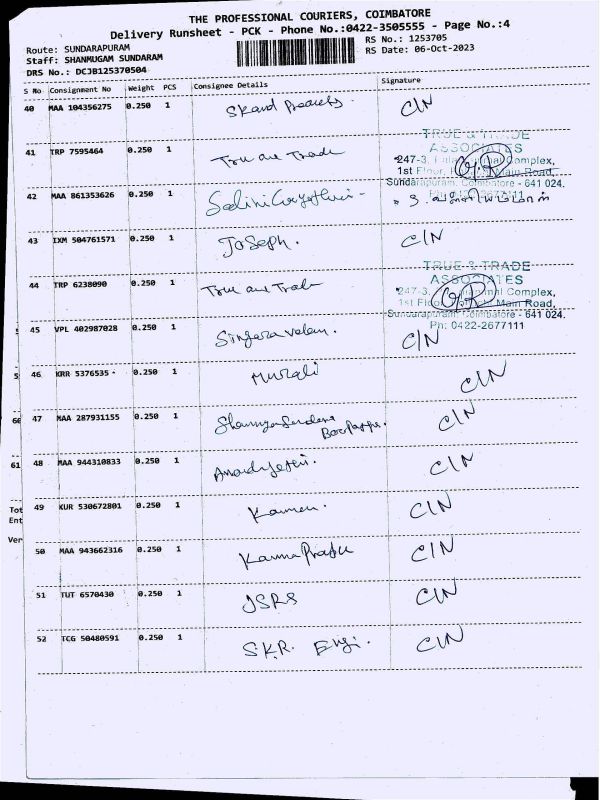 THE PROFESSIONAL COURIERS, COIMBATORE
Delivery Runsheet - PCK - Phone No.:0422-3505555 - Page No.:4
Route: SUNDARAPURAM
RS No.: 1253705
Staff: SHANMUGAM SUNDARAM
RS Date: 06-Oct-2023
DRS No.: DCJB125370504
S No Consignment No Weight PCS Consignee Details Signature
40 MAA 104356275 0.250 1 CIN
TRUE & TRADE
ASSOCIATES
41 TRP 7595464 0.250 1 True and Trade
247-3, Complex,
1st Floor, Main Road,
Sundarapuram, Coimbatore - 641 024.
Ph: 0422-2677111
42 MAA 861353626 0.250 1
43 IXM 504761571 0.250 1 Joseph. CIN
TRUE & TRADE
ASSOCIATES
44 TRP 6238090 0.250 1 True and Trade
247-3, Complex,
1st Floor, Main Road,
Sundarapuram, Coimbatore - 641 024.
Ph: 0422-2677111
45 VPL 402987028 0.250 1 Singaravelan. CIN
46 KRR 5376535 0.250 1 Murali CIN
47 MAA 287931155 0.250 1 CIN
61 48 MAA 944310833 0.250 1 CIN
49 KUR 530672801 0.250 1 CIN
Tot
Ent
Ver
50 MAA 943662316 0.250 1 CIN
51 TUT 6570430 0.250 1 JSRS CIN
52 TCG 50480591 0.250 1 S.K.R. Engi. CIN